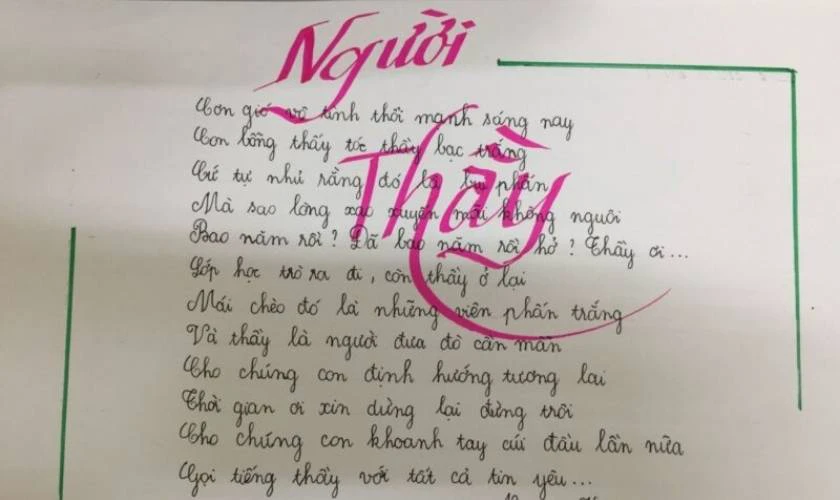 Người
Thầy
Cơn gió vô tình thổi mạnh sáng nay
Con bỗng thấy tóc thầy bạc trắng
Cứ tự nhủ rằng đó là bụi phấn
Mà sao lòng xao xuyến mãi không nguôi
Bao năm rồi? Đã bao năm rồi hở? Thầy ơi...
Lớp học trò ra đi, còn thầy ở lại
Mái chèo đó là những viên phấn trắng
Và thầy là người đưa đò cần mẫn
Cho chúng con định hướng tương lai
Thời gian ơi xin dừng lại đừng trôi
Cho chúng con khoanh tay cúi đầu lần nữa
Gọi tiếng thầy với tất cả tin yêu...